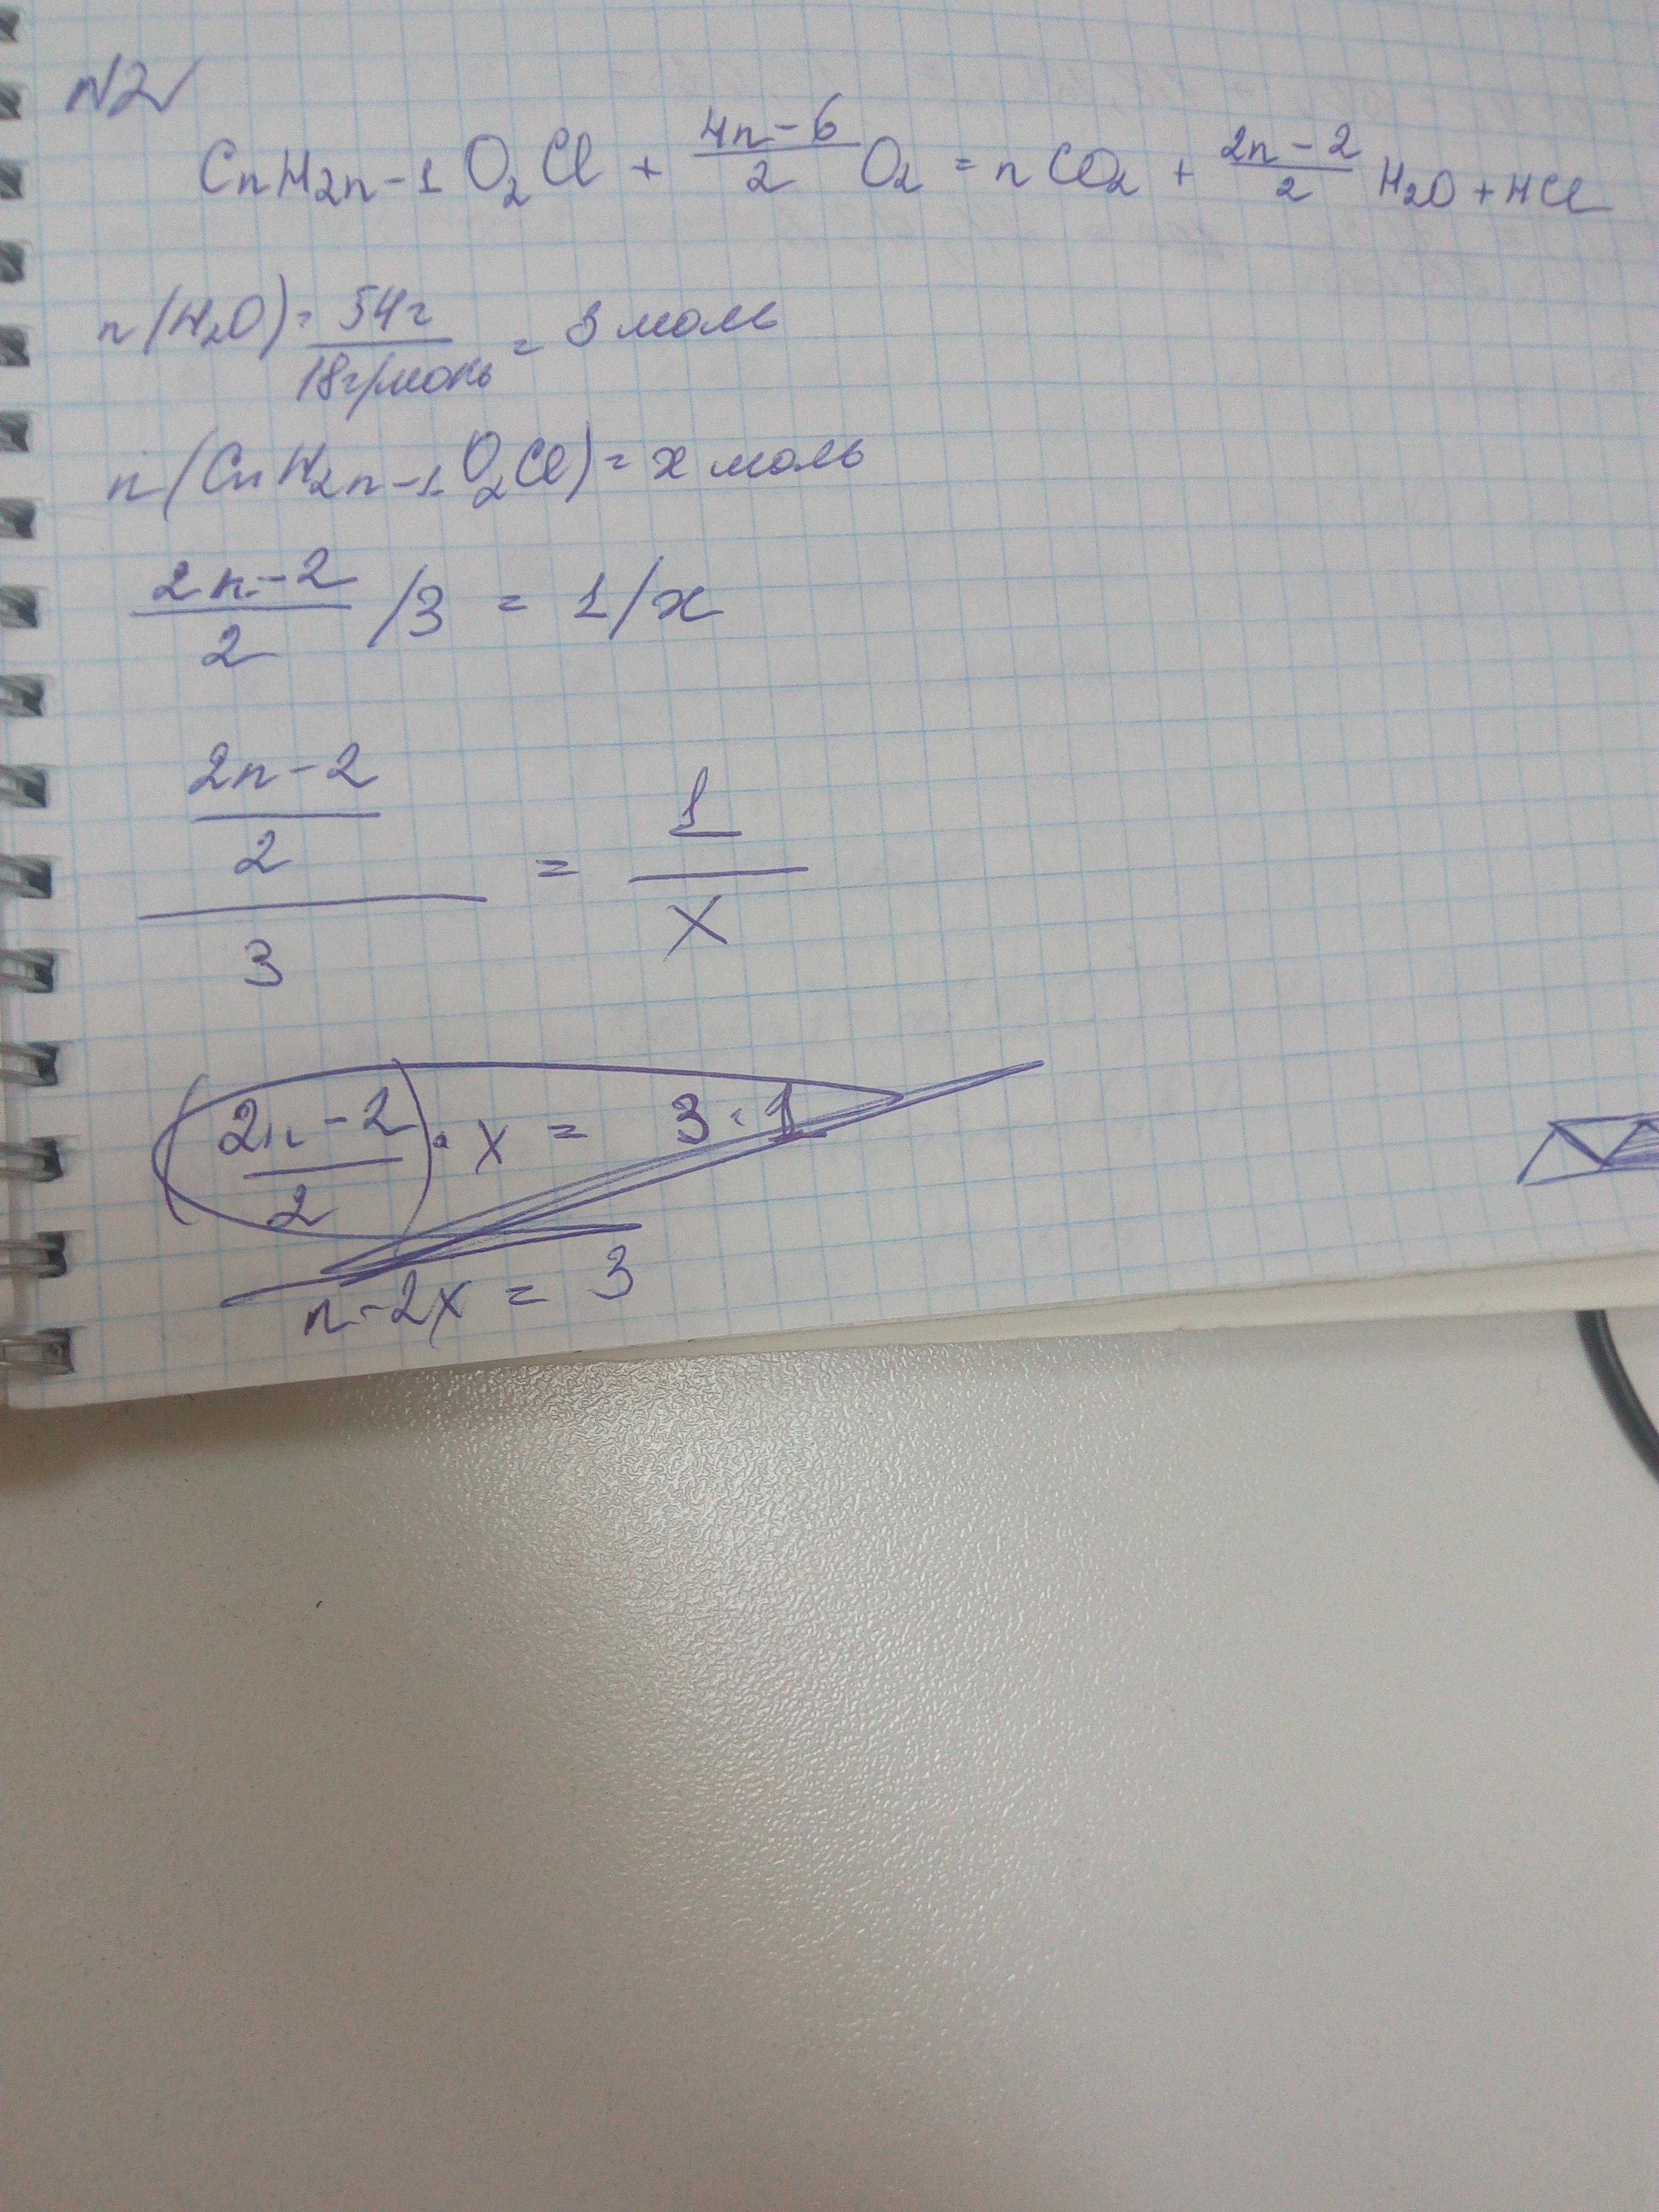 N2
CnH2n-1O2Cl + 4n-6/2 O2 = nCO2 + 2n-2/2 H2O + HCl
n(H2O) = 54г/18г/моль = 3 моль
n(CnH2n-1O2Cl) = x моль
2n-2/2 /3 = 1/x
2n-2
2
3
=
1
x
(2n-2/2) · x = 3 · 1
n-2x = 3